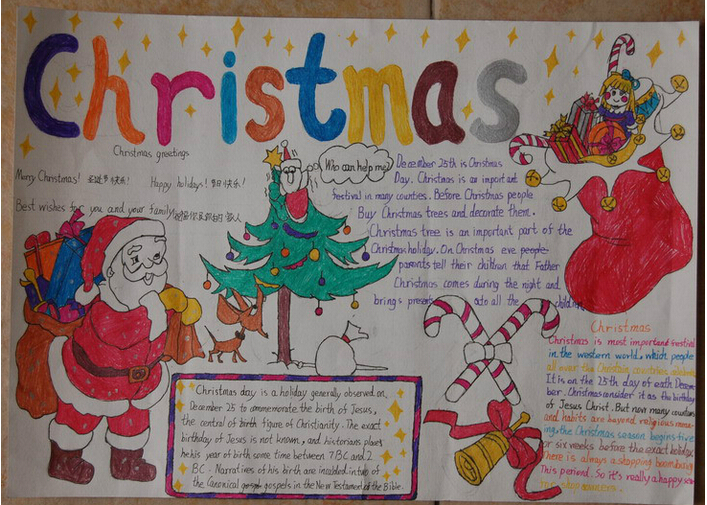 Christmas
Christmas greetings
Merry Christmas! 圣诞节快乐!
Happy holidays! 节日快乐!
Best wishes for you and your family 祝福你及你的家人
Who can help me?
December 25th is Christmas
Day. Christmas is an important
festival in many counties. Before Christmas people
Buy Christmas trees and decorate them.
Christmas tree is an important part of the
Christmas holiday. On Christmas eve people
parents tell their children that Father
Christmas comes during the night and
brings presents to all the children
Christmas day is a holiday generally observed on
December 25 to ommemorate the birth of Jesus,
the central of birth figure of Christianity. The exact
birthday of Jesus is not known, and historians places
his year of birth some time between 7BC and 2
BC. Narratives of his birth are in two of
the Canonical gospels in the New Testament of the Bible.
Christmas
Christmas is most important festival
in the western world, which people
all over the Christian countries celebrate
It is on the 25th day of each Decem-
ber. Christmas consider it as the birthday
of Jesus Christ. But now many countries
and habits are beyond religious
the Christmas season begins five
or six weeks before the exact holiday
There is always a shopping boom during
This period. So it's really a happy
for shop